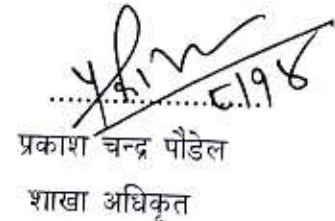 ५।१४
प्रकाश चन्द्र पौडेल
शाखा अधिकृत